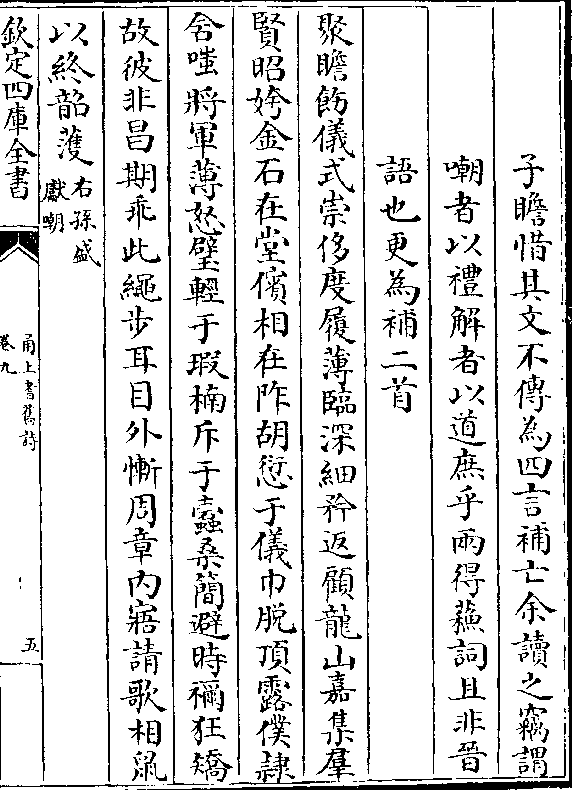 子瞻惜其文不傳為四言補亡余讀之竊謂
嘲者以禮解者以道庶乎兩得蘇詞且非晉
語也更為補二首
聚瞻飭儀式崇侈度履薄臨深細矜返顧龍山嘉集羣
賢昭姱金石在堂儐相在阼胡愆于儀巾脱頂露僕隷
含嗤將軍薄怒璧輕于瑕楠斥于蠹桑簡避時禰狂矯
故彼非昌期乖此繩步耳目外慚周章内寤請歌相鼠
以終韶濩右孫盛
獻嘲
欽定四庫全書
甬上耆舊詩
卷九
五